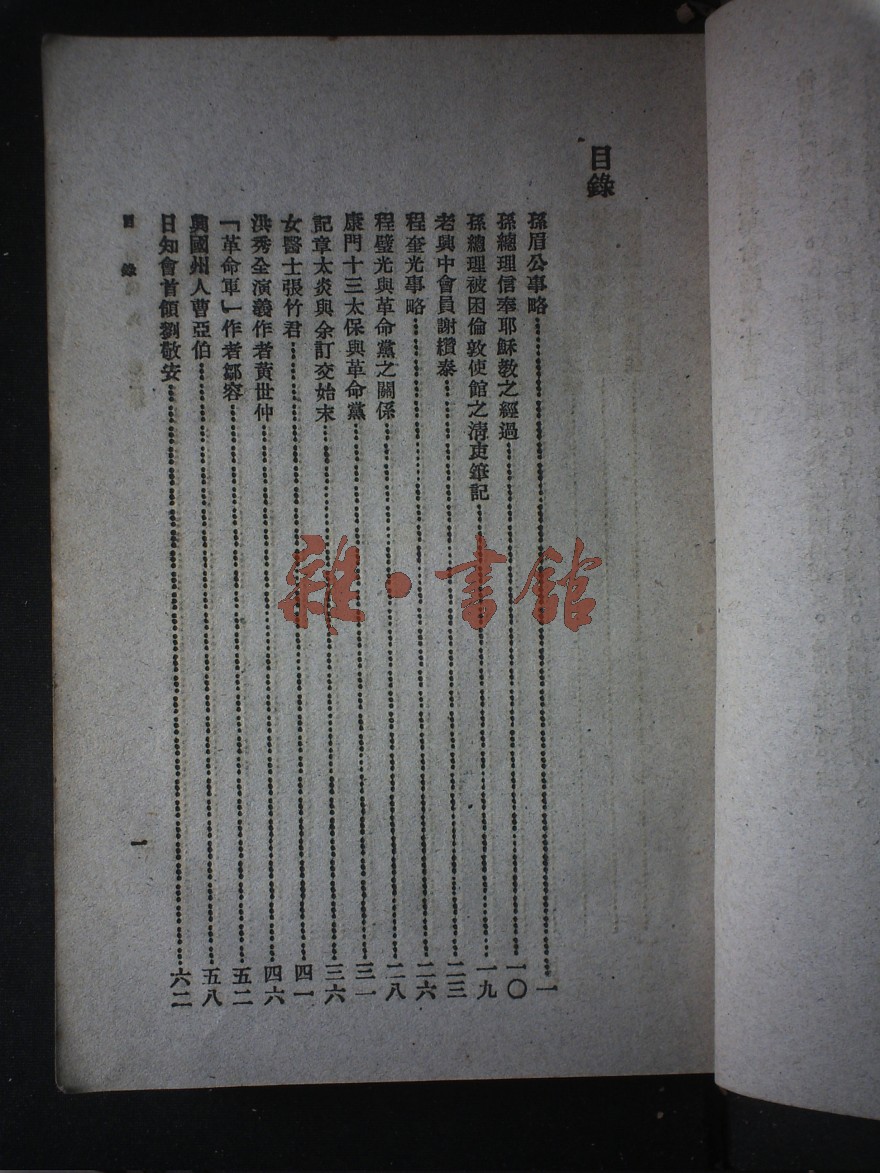 目錄
孫眉公事略一
孫總理信奉耶穌教之經過一〇
孫總理被困倫敦使館之清吏筆記一九
老興中會員謝纘泰二三
程奎光事略二六
程璧光與革命黨之關係二八
康門十三太保與革命黨三一
記章太炎與余訂交始末三六
女醫士張竹君四一
洪秀全演義作者黃世仲四六
「革命軍」作者鄒容五二
興國州人曹亞伯五八
日知會首領劉敬安六二
目錄 一
雜·書館